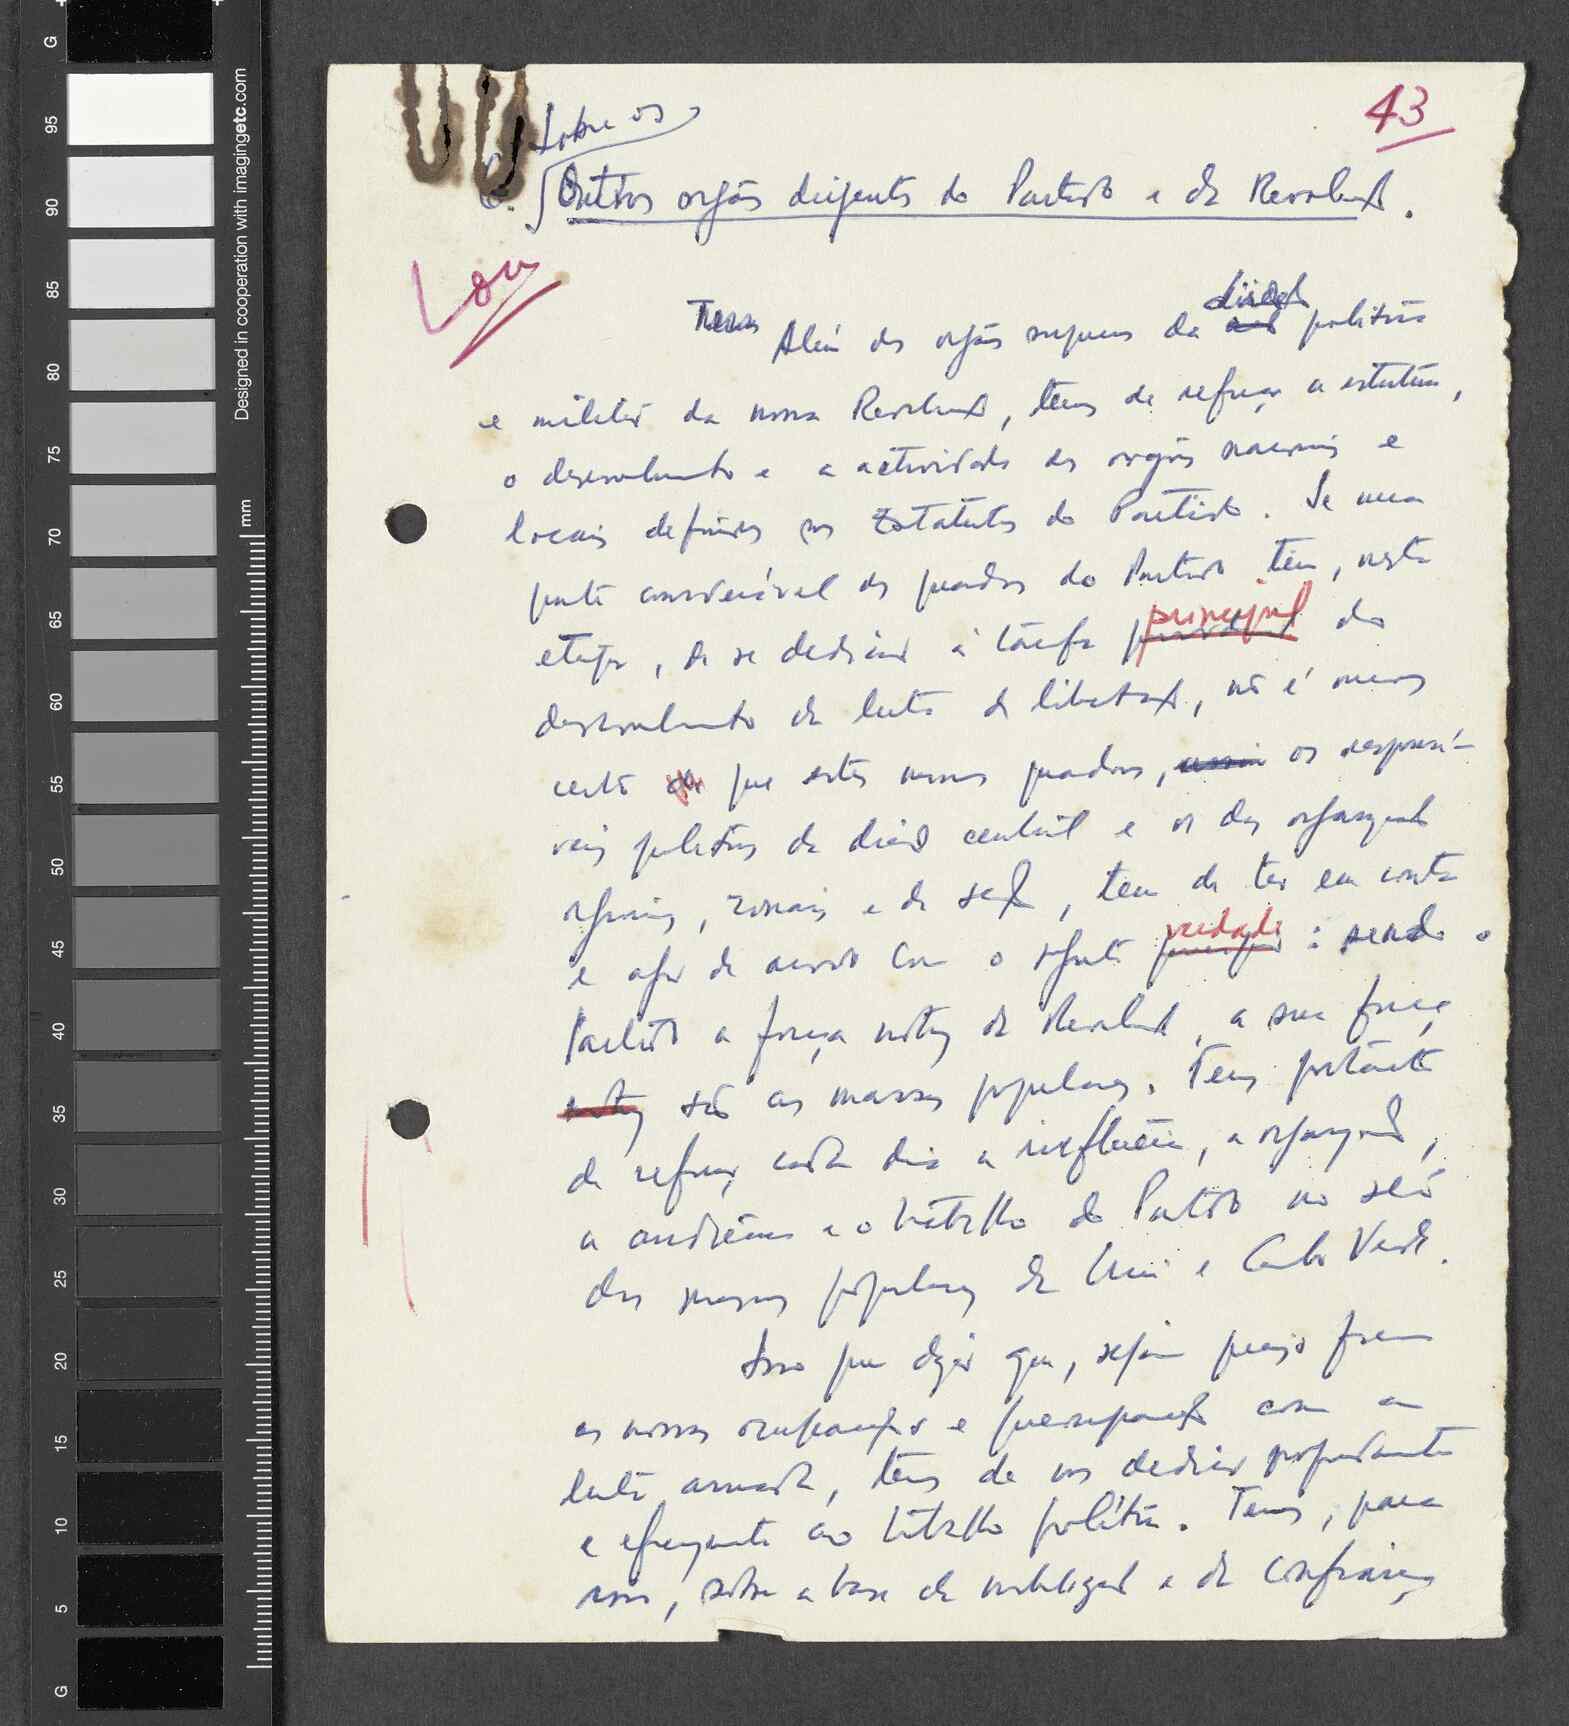 43
Sobre os
Outros orgãos dirigentes do Partido e da Revolução.
Além dos orgãos supremos da direcção política
e militar da nossa Revolução, temos de reforçar a estrutura,
o desenvolvimento e a actividade dos orgãos nacionais e
locais definidos nos Estatutos do Partido. Se uma
parte considerável dos quadros do Partido tem, nesta
etapa, de se dedicar à tarefa principal do
desenvolvimento da luta de libertação, não é menos
certo que estes mesmos quadros, assim os responsá-
veis políticos da direcção central e os das organizações
regionais, zonais e de secção, têm de ter em conta
e agir de acordo com o seguinte verdade : sendo o
Partido a força motriz da Revolução, a sua força
motriz são as massas populares. Temos portanto
de reforçar cada dia a influência, a organização,
a audiência e o trabalho do Partido no seio
das massas populares da Guiné e Cabo Verde.
Isso quer dizer que, sejam quais forem
as nossas ocupações e preocupações com a
luta armada, temos de nos dedicar profundamente
e eficazmente ao trabalho político. Temos, para
isso, sobre a base da mobilização e da confiança
Designed in cooperation with imagingetc.com
mm
G
95
90
85
80
75
70
65
60
55
50
45
40
35
30
25
20
15
10
5
G